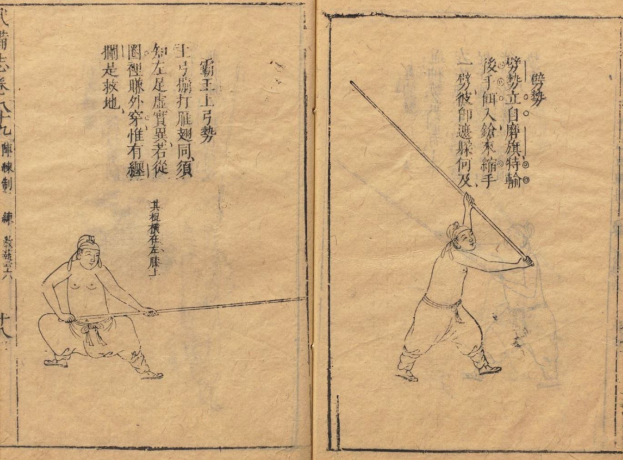 劈勢
劈勢立自磨旗特輸
後手佃入鎗來縮手
一劈彼卽遽躱何及
霸王上弓勢
上弓擄打雁翅同須
知左足虛實異若從
圈裡賺外穿惟有纏
攔是救地
其棍橫在左膝上
武備志 卷八十九 陣練制 練 教藝六 十八